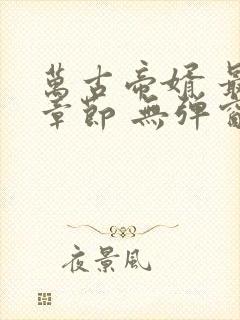 萬古帝婿 最
章節 無彈窗
夜景風